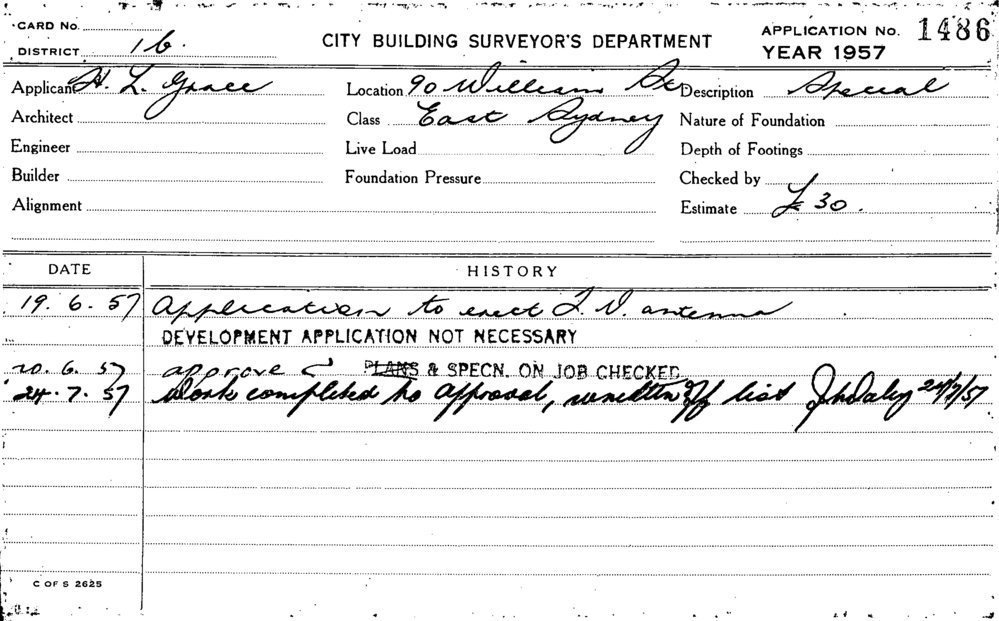 CARD No.
DISTRICT 16.
CITY BUILDING SURVEYOR'S DEPARTMENT
APPLICATION No. 1486
YEAR 1957
Applicant H. L. Grace
Location 90 William St
Description Special
Architect
Class East Sydney
Nature of Foundation
Engineer
Live Load
Depth of Footings
Builder
Foundation Pressure
Checked by
Alignment
Estimate £ 30.
DATE HISTORY
19. 6. 57 Application to erect T. V. antenna
DEVELOPMENT APPLICATION NOT NECESSARY
20. 6. 57 approve PLANS & SPECN. ON JOB CHECKED
24. 7. 57 Work completed to approval, written off list JhDaley 24/7/57
C OF S 2625